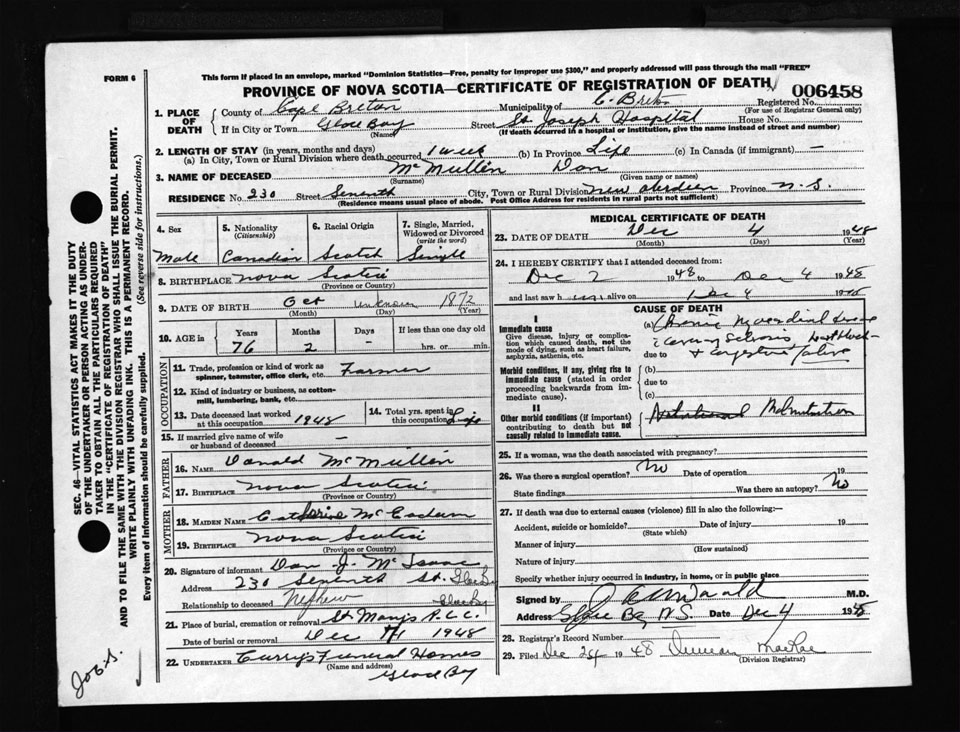 FORM 6
This form if placed in an envelope, marked "Dominion Statistics—Free, penalty for improper use $300," and properly addressed will pass through the mail "FREE"
PROVINCE OF NOVA SCOTIA—CERTIFICATE OF REGISTRATION OF DEATH
006458
1. PLACE OF DEATH
County of Cape Breton Municipality of C. Breton Registered No.
(For use of Registrar General only)
If in City or Town Glace Bay Street St. Joseph Hospital House No.
(Name) (If death occurred in a hospital or institution, give the name instead of street and number)
2. LENGTH OF STAY (in years, months and days)
(a) In City, Town or Rural Division where death occurred 1 week (b) In Province Life (c) In Canada (if immigrant) —
3. NAME OF DECEASED McMullin Dan
(Surname) (Given name or names)
RESIDENCE No. 230 Street Seventh City, Town or Rural Division New Aberdeen Province N.S.
(Residence means usual place of abode. Post Office Address for residents in rural parts not sufficient)
4. Sex
Male
5. Nationality (Citizenship)
Canadian
6. Racial Origin
Scotch
7. Single, Married, Widowed or Divorced (write the word)
Single
8. BIRTHPLACE Nova Scotia
(Province or Country)
9. DATE OF BIRTH Oct unknown 1872
(Month) (Day) (Year)
10. AGE in
Years Months Days If less than one day old
76 2 - hrs. or min.
OCCUPATION
11. Trade, profession or kind of work as spinner, teamster, office clerk, etc. Farmer
12. Kind of industry or business, as cotton-mill, lumbering, bank, etc.
13. Date deceased last worked at this occupation 1948
14. Total yrs. spent in this occupation Life
15. If married give name of wife or husband of deceased —
FATHER
16. NAME Donald McMullin
17. BIRTHPLACE Nova Scotia
(Province or Country)
MOTHER
18. MAIDEN NAME Catherine McEachern
19. BIRTHPLACE Nova Scotia
(Province or Country)
20. Signature of informant Dan J. McIsaac
Address 230 Seventh St. Glace Bay
Relationship to deceased Nephew Glace Bay
21. Place of burial, cremation or removal St Marys R.C.C.
Date of burial or removal Dec 1948
22. UNDERTAKER Curry's Funeral Homes
(Name and address)
Glace Bay
MEDICAL CERTIFICATE OF DEATH
23. DATE OF DEATH Dec 4 1948
(Month) (Day) (Year)
24. I HEREBY CERTIFY that I attended deceased from:
Dec 2 1948 to Dec 4 1948
and last saw h im alive on Dec 4 1948
CAUSE OF DEATH
I
Immediate cause
Give disease, injury or complication which caused death, not the mode of dying, such as heart failure, asphyxia, asthenia, etc.
(a) Chronic Myocardial
due to
Morbid conditions, if any, giving rise to immediate cause (stated in order proceeding backwards from immediate cause).
(b)
due to
(c)
II
Other morbid conditions (if important) contributing to death but not causally related to immediate cause.
Malnutrition
25. If a woman, was the death associated with pregnancy?
26. Was there a surgical operation? No Date of operation 19
State findings Was there an autopsy? No
27. If death was due to external causes (violence) fill in also the following:—
Accident, suicide or homicide? Date of injury 19
(State which)
Manner of injury
(How sustained)
Nature of injury
Specify whether injury occurred in industry, in home, or in public place
Signed by M.D.
Address Glace Bay N.S. Date Dec 4 1948
28. Registrar's Record Number
29. Filed Dec 1948 Duncan MacRae
(Division Registrar)
SEC. 46—VITAL STATISTICS ACT MAKES IT THE DUTY
OF THE UNDERTAKER OR PERSON ACTING AS UNDER-
TAKER TO OBTAIN ALL THE PARTICULARS REQUIRED
IN THE "CERTIFICATE OF REGISTRATION OF DEATH"
AND TO FILE THE SAME WITH THE DIVISION REGISTRAR WHO SHALL ISSUE THE BURIAL PERMIT.
WRITE PLAINLY WITH UNFADING INK. THIS IS A PERMANENT RECORD.
Every item of Information should be carefully supplied. (See reverse side for instructions.)